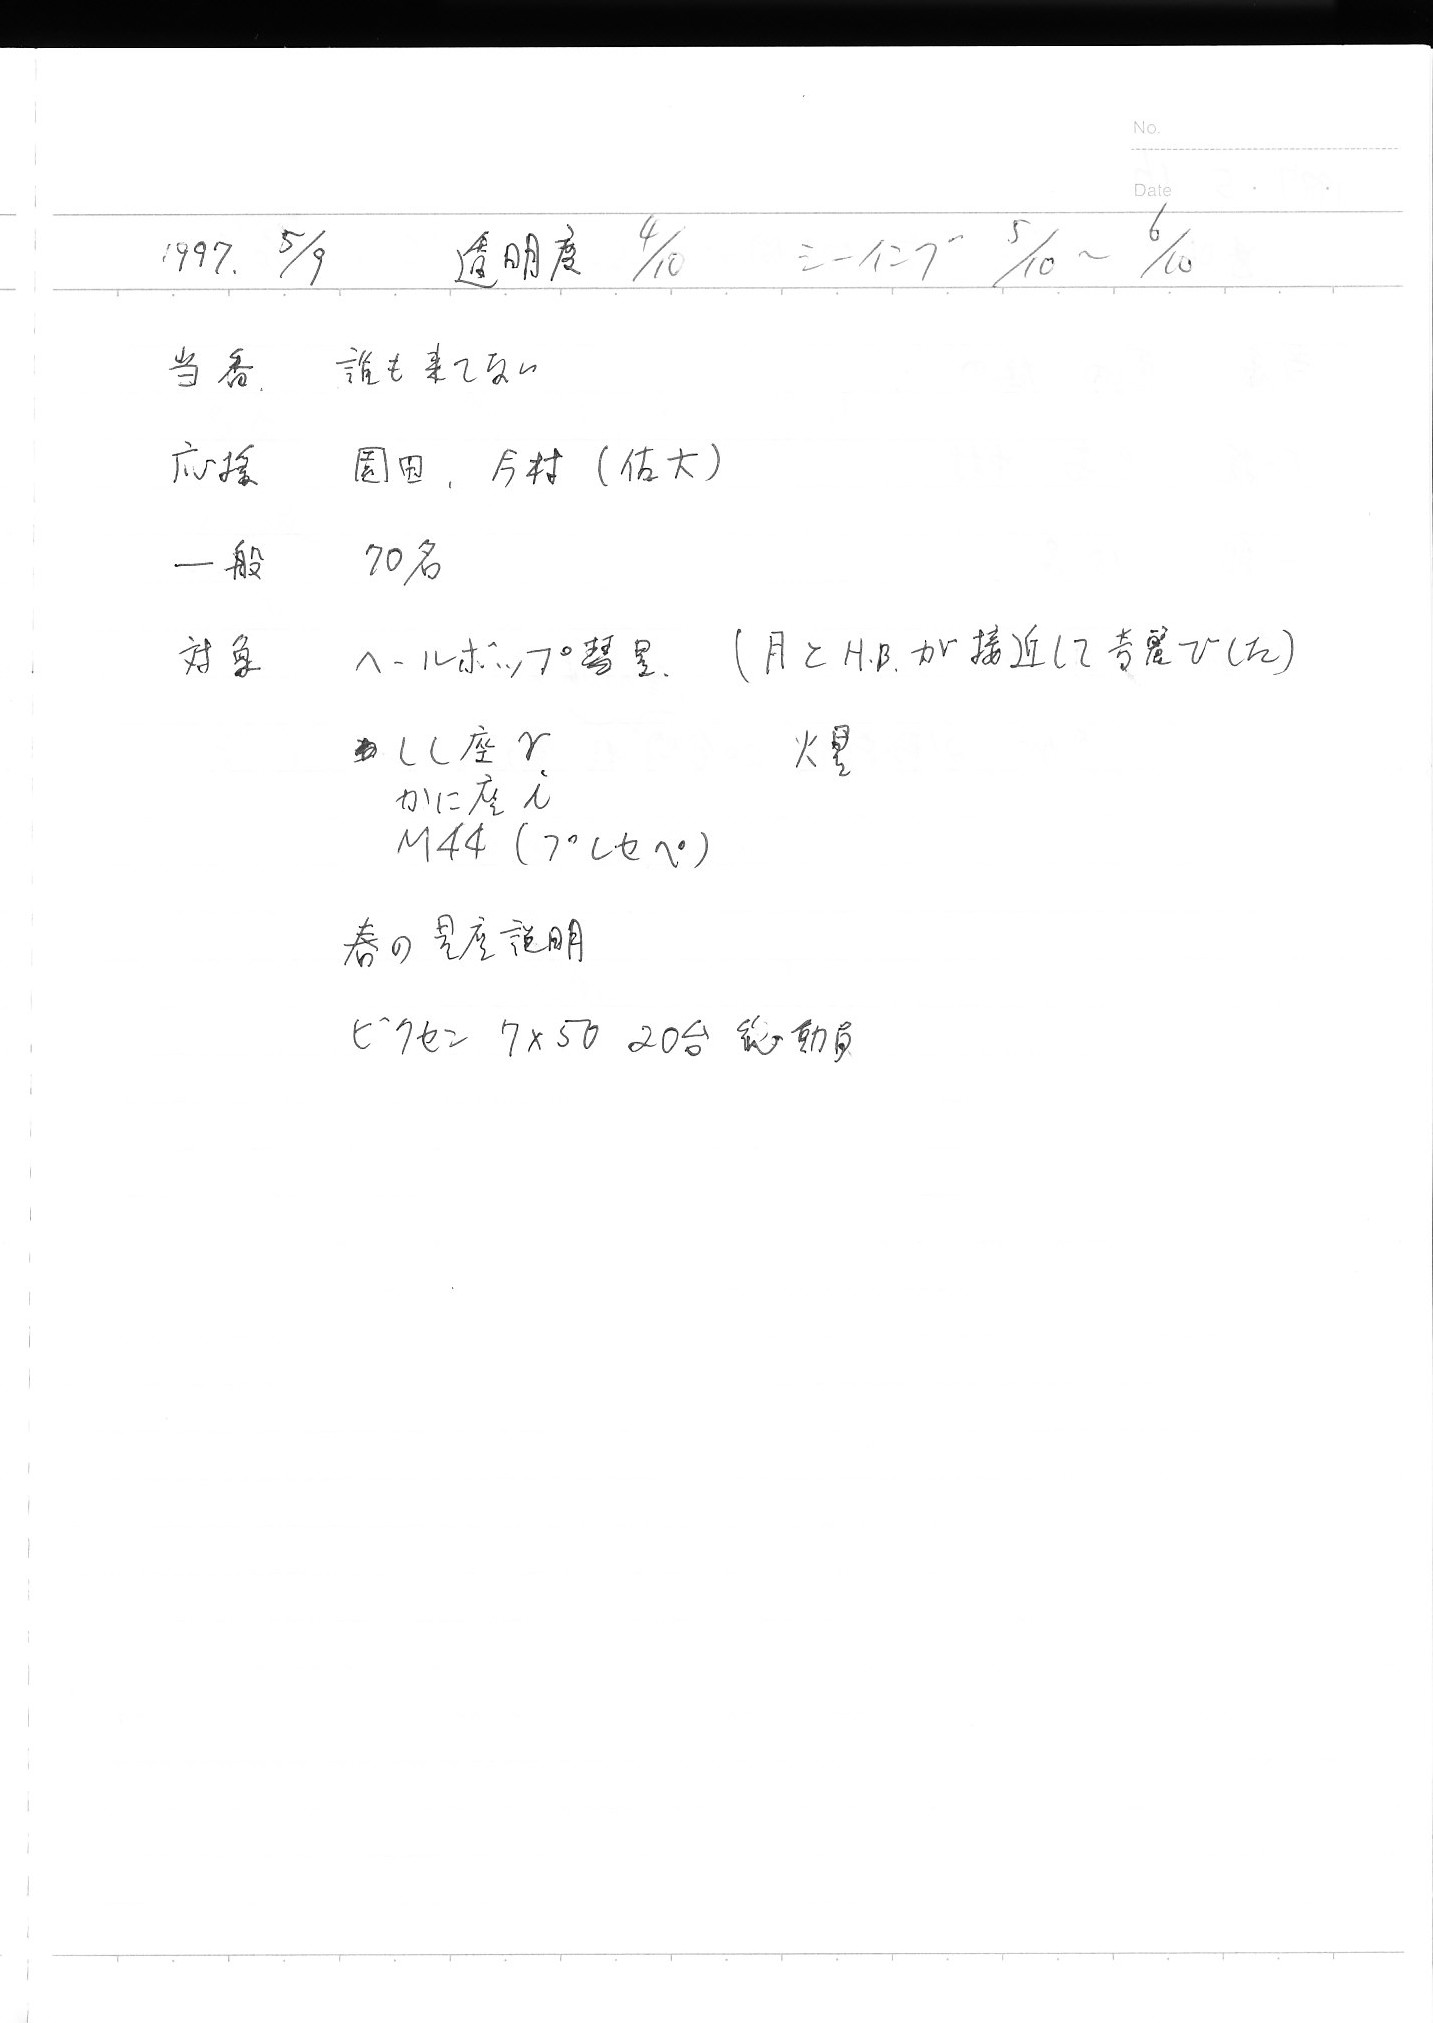 No.
Date
1997. 5/9 透明度 4/10 シーイング 5/10 ~ 6/10
当番. 誰も来てない
応援 園田. 今村 (佐大)
一般 70名
対象 ヘールボップ彗星. (月とH.B.が接近して奇麗でした)
しし座γ 火星
かに座 i
M44 (プレセペ)
春の星座説明
ビクセン 7x50 20台 総動員